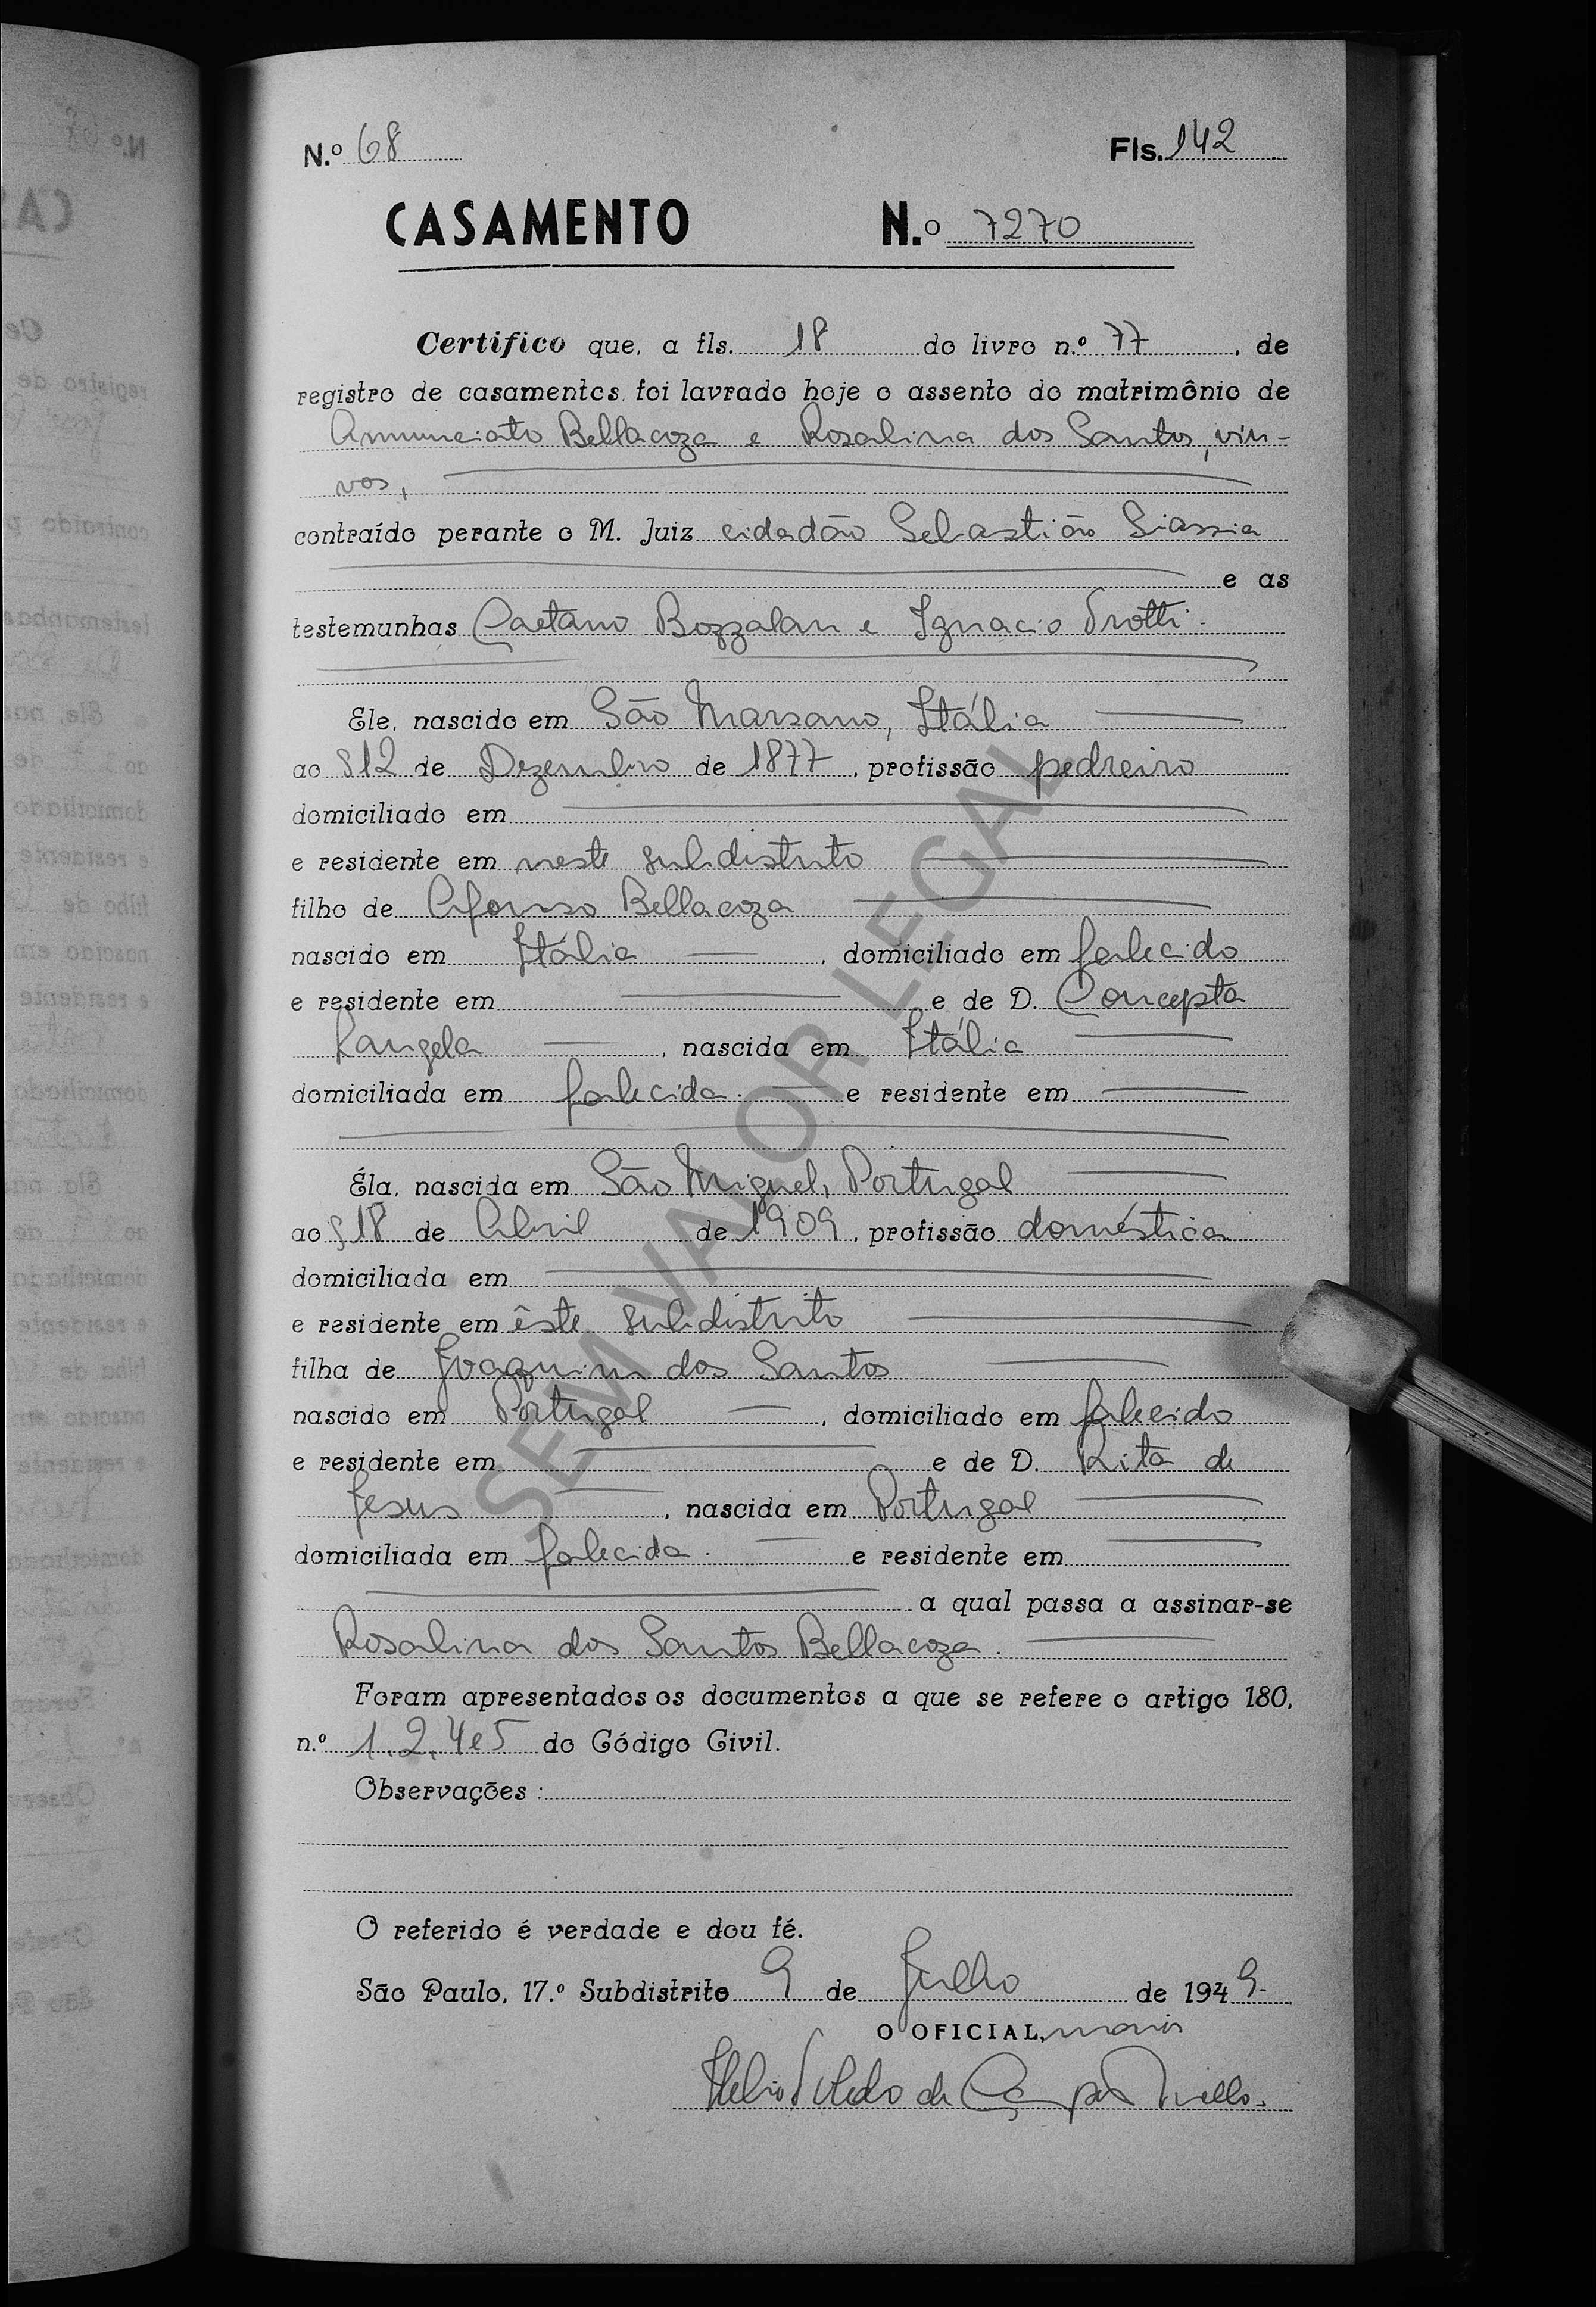 N.º 68 Fls. 142
CASAMENTO N.º 7270
Certifico que, a fls. 18 do livro n.º 77, de
registro de casamentos, foi lavrado hoje o assento do matrimônio de
Annunciato Bellacoza e Rosalina dos Santos, viu-
vos,
contraído perante o M. Juiz cidadão Sebastião
e as
testemunhas Caetano Bozzalan e Ignacio Trotti.
Ele, nascido em São Marsano, Itália
aos 12 de Dezembro de 1877, profissão pedreiro
domiciliado em
e residente em neste subdistrito
filho de Afonso Bellacoza
nascido em Itália, domiciliado em falecido
e residente em e de D. Concepta
Rangela, nascida em Itália
domiciliada em falecida. e residente em
Éla, nascida em São Miguel, Portugal
aos 18 de Abril de 1909, profissão doméstica
domiciliada em
e residente em êste subdistrito
filha de Joaquim dos Santos
nascido em Portugal, domiciliado em falecido
e residente em e de D. Rita de
Jesus, nascida em Portugal
domiciliada em falecida. e residente em
a qual passa a assinar-se
Rosalina dos Santos Bellacoza.
Foram apresentados os documentos a que se refere o artigo 180,
n.º 1, 2, 4 e 5 do Código Civil.
Observações:
O referido é verdade e dou fé.
São Paulo, 17.º Subdistrito 9 de Julho de 1949-
O OFICIAL, maior
Helio Toledo de Campos Mello.
SEM VALOR LEGAL